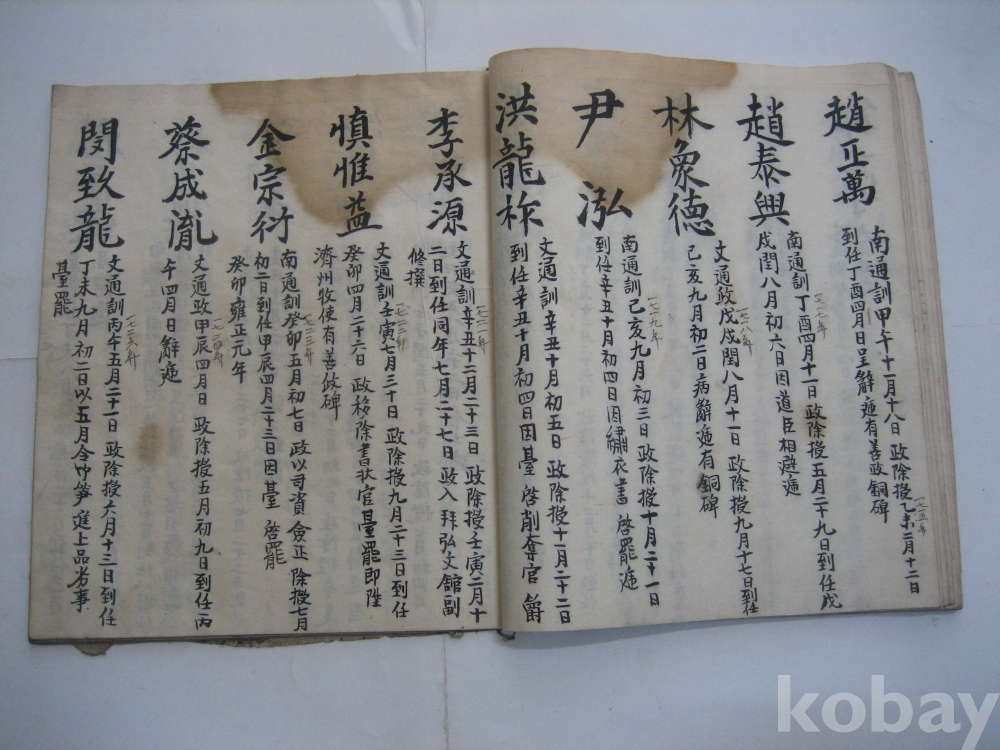 趙正萬
南通訓甲午十一月十八日 政除授乙未二月十二日
到任丁酉四月日呈解遞有善政銅碑
一七一五年
趙泰興
南通訓丁酉四月十一日 政除授五月二十九日到任戊
戌閏八月初六日因道臣相避遞
一七一七年
林象德
文通政戊戌閏八月十一日 政除授九月十七日到任
己亥九月初二日病解遞有銅碑
一七一八年
尹泓
南通訓己亥九月初三日 政除授十月二十一日
到任辛丑十月初四日因繡衣書 啓罷遞
一七一九年
洪龍祚
文通訓辛丑十月初五日 政除授十一月二十二日
到任辛丑十月初四日因臺 啓削奪官爵
李承源
文通訓辛丑十二月二十三日 政除授壬寅二月十
二日到任同年七月二十七日 政入拜弘文館副
修撰
一七二一年
慎惟益
文通訓壬寅七月三十日 政除授九月二十三日到任
癸卯四月二十六日 政移除書狀官臺罷即陞
濟州牧使有善政碑
金宗衍
南通訓癸卯五月初七日 政以司資僉正除授七月
初二日到任甲辰四月二十三日因臺 啓罷
癸卯雍正元年
一七二三年
蔡成胤
文通政甲辰四月日 政除授五月初九日到任丙
午四月日解遞
一七二四年
閔致龍
文通訓丙午五月二十一日 政除授六月十三日到任
丁未九月初二日以五月令中笋進上品劣事
臺罷
一七二六年
kobay